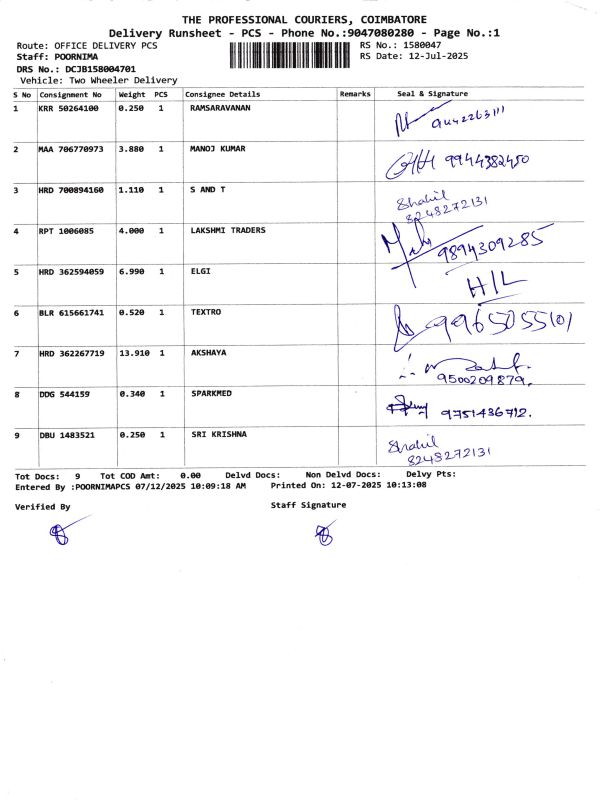 THE PROFESSIONAL COURIERS, COIMBATORE
Delivery Runsheet - PCS - Phone No.:9047080280 - Page No.:1
Route: OFFICE DELIVERY PCS RS No.: 1580047
Staff: POORNIMA RS Date: 12-Jul-2025
DRS No.: DCJB158004701
Vehicle: Two Wheeler Delivery
S No Consignment No Weight PCS Consignee Details Remarks Seal & Signature
1 KRR 50264100 0.250 1 RAMSARAVANAN
2 MAA 706770973 3.880 1 MANOJ KUMAR 9944382450
3 HRD 700894160 1.110 1 S AND T Shahil
8248272131
4 RPT 1006085 4.000 1 LAKSHMI TRADERS 9894309285
5 HRD 362594059 6.990 1 ELGI H/L
6 BLR 615661741 0.520 1 TEXTRO 9965055101
7 HRD 362267719 13.910 1 AKSHAYA
9500209879.
8 DDG 544159 0.340 1 SPARKMED 9751436712.
9 DBU 1483521 0.250 1 SRI KRISHNA Shahil
8248272131
Tot Docs: 9 Tot COD Amt: 0.00 Delvd Docs: Non Delvd Docs: Delvy Pts:
Entered By :POORNIMAPCS 07/12/2025 10:09:18 AM Printed On: 12-07-2025 10:13:08
Verified By Staff Signature